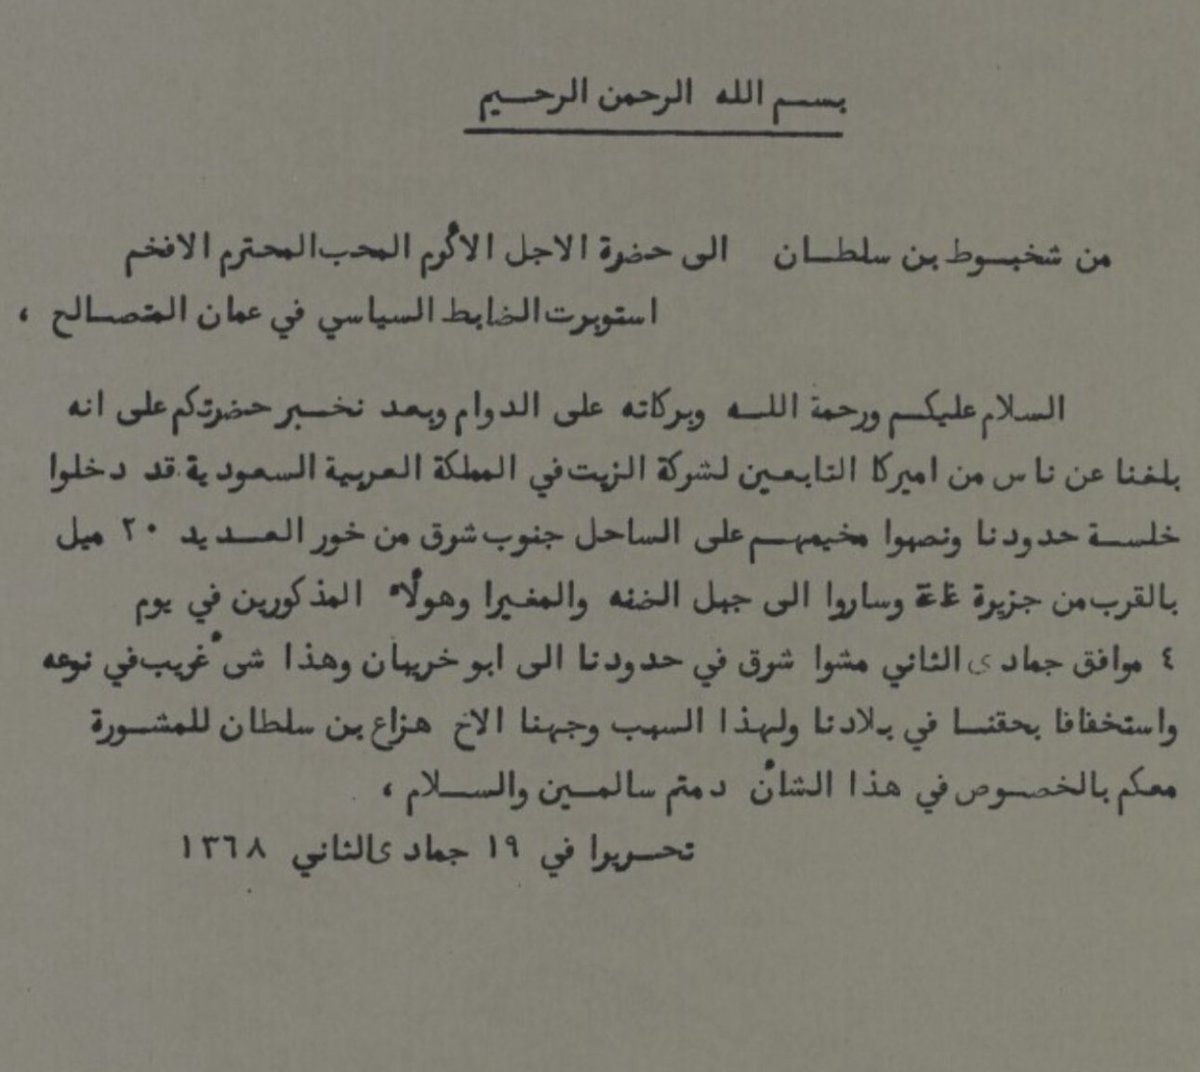 بسم الله الرحمن الرحيم
من شخبوط بن سلطان الى حضرة الاجل الاكرم المحب المحترم الافخم
استوبرت الضابط السياسي في عمان المتصالح ،
السلام عليكم ورحمة الله وبركاته على الدوام وبعد نخبر حضرتكم على انه
بلغنا عن ناس من اميركا التابعين لشركة الزيت في المملكة العربية السعودية قد دخلوا
خلسة حدودنا ونصبوا مخيمهم على الساحل جنوب شرق من خور العديد ٢٠ ميل
بالقرب من جزيرة غاغة وساروا الى جبل الضنه والمغيرا وهولاء المذكورين في يوم
٤ موافق جمادى الثاني مشوا شرق في حدودنا الى ابو خريبان وهذا شىء غريب في نوعه
واستخفافا بحقنا في بلادنا ولهذا السبب وجهنا الاخ هزاع بن سلطان للمشورة
معكم بالخصوص في هذا الشأن دمتم سالمين والسلام ،
تحريرا في ١٩ جمادى الثاني ١٣٦٨